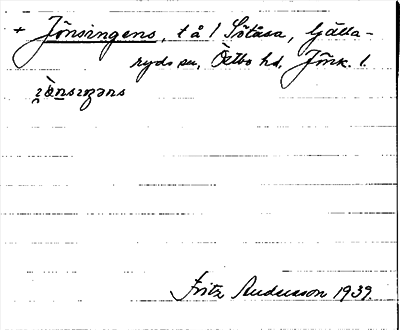 + Jönsingens, t å 1 Sötåsa, Gjälla-
ryds sn, Östbo hd, Jönk. l.
Fritz Andersson 1939.